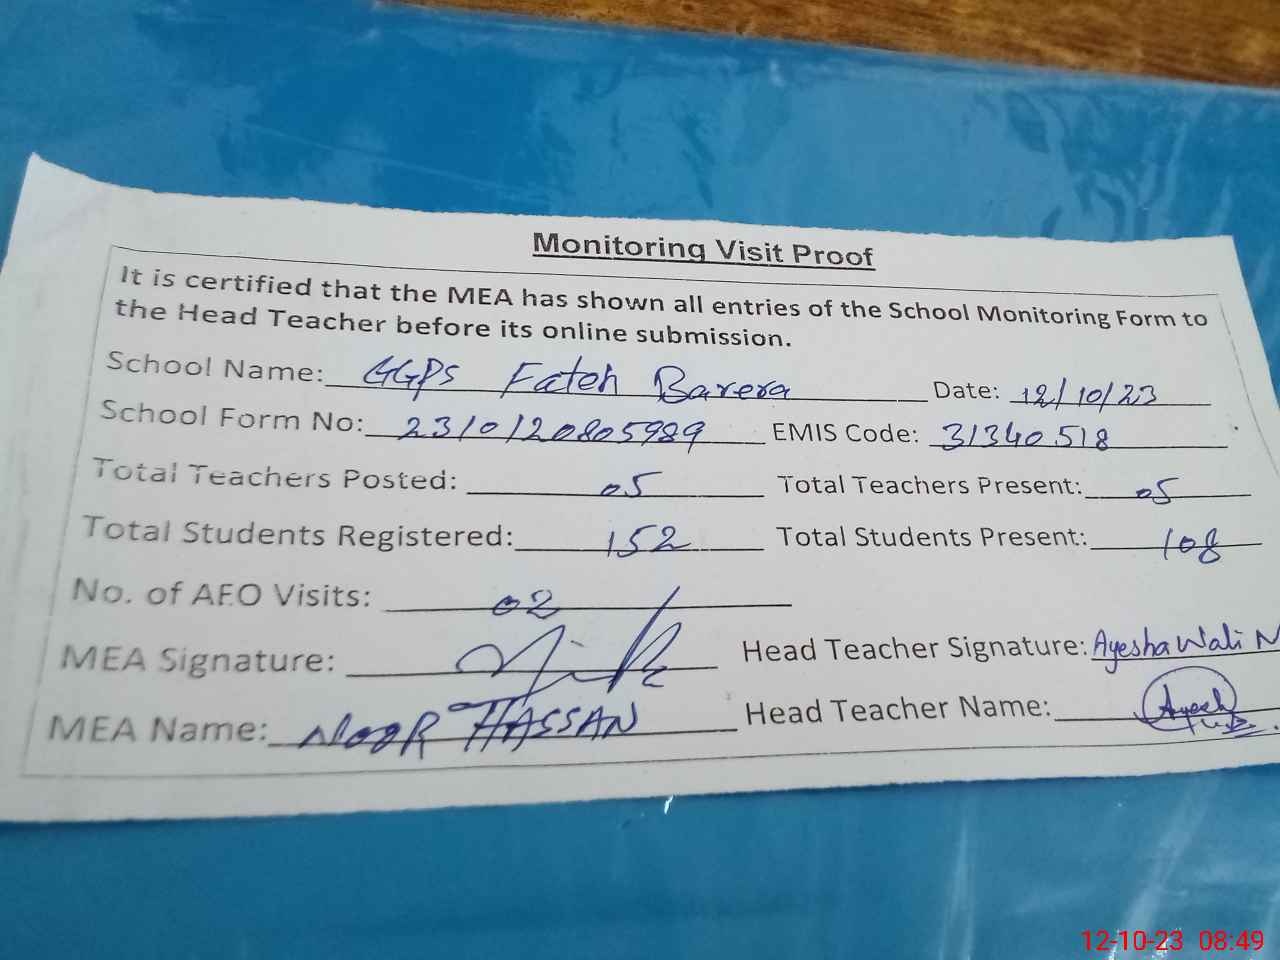 Monitoring Visit Proof
It is certified that the MEA has shown all entries of the School Monitoring Form to
the Head Teacher before its online submission.
School Name: GGPS Fateh Barera Date: 12/10/23
School Form No: 2310120805989 EMIS Code: 31340518
Total Teachers Posted: 05 Total Teachers Present: 05
Total Students Registered: 152 Total Students Present: 108
No. of AEO Visits: 02
MEA Signature: Head Teacher Signature: Ayesha Wali N
MEA Name: NOOR HASSAN Head Teacher Name:
12-10-23 08:49